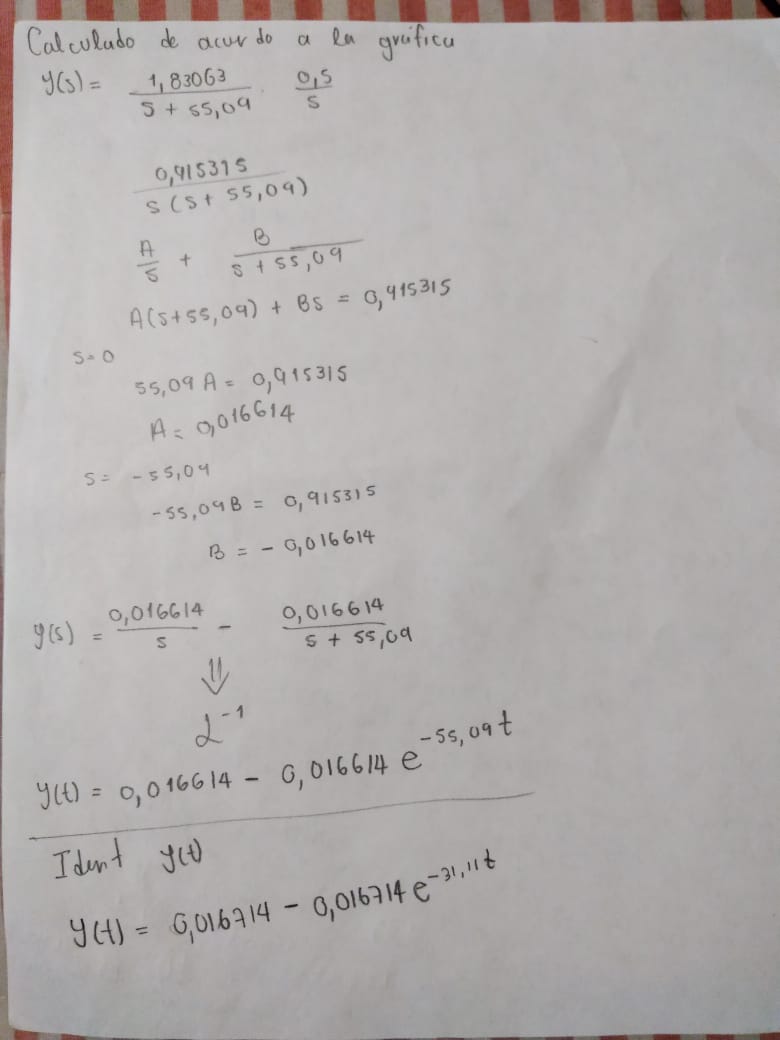 Calculado de acurdo a la grafica
Y(s) = 1,83063 / S + 55,09 . 0,5 / S
0,915315 / S (S + 55,09)
A / S + B / S + 55,09
A(S+55,09) + BS = 0,915315
S=0
55,09 A = 0,915315
A = 0,016614
S= -55,09
-55,09B = 0,915315
B = - 0,016614
y(s) = 0,016614 / S - 0,016614 / S + 55,09
⇓
L⁻¹
y(t) = 0,016614 - 0,016614 e^-55,09t
Ident y(t)
y(t) = 0,016714 - 0,016714 e^-31,11t